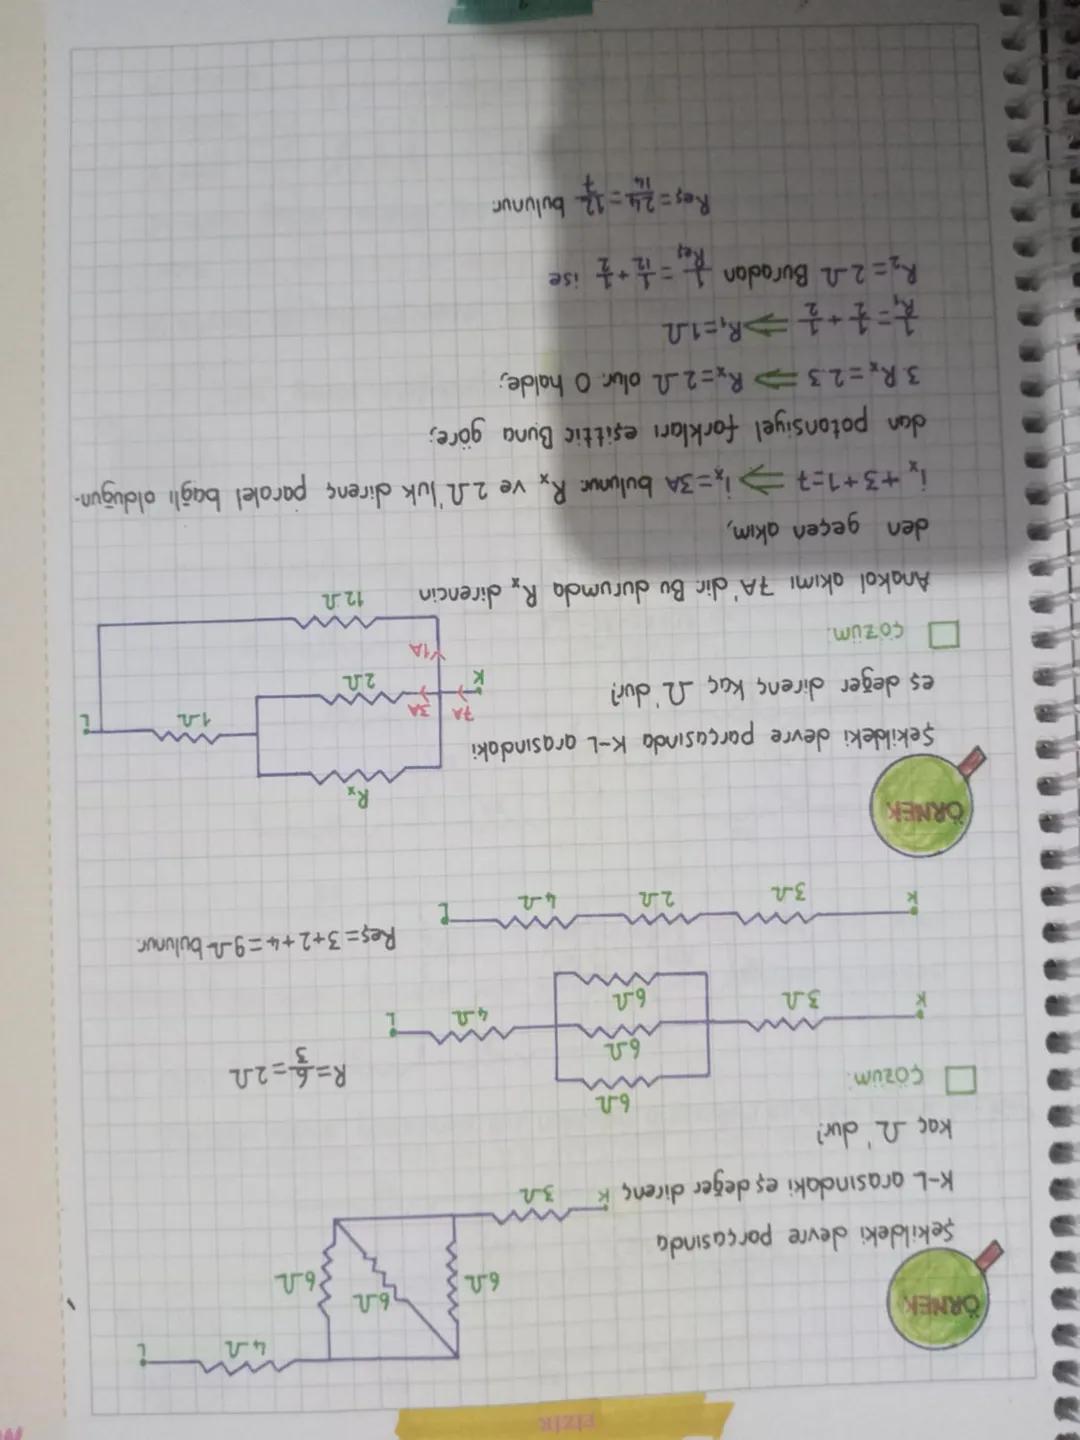 FİZİK
ÖRNEK
Şekildeki devre parçasında
K-L arasındaki eşdeğer direnç
kaç Ω'dur?
K
3Ω
6Ω
6Ω
6Ω
4Ω
L
ÇÖZÜM:
K
3Ω
6Ω
6Ω
6Ω
4Ω
L
R=6/3=2Ω
K
3Ω
2Ω
4Ω
L
Reş=3+2+4=9Ω bulunur.
ÖRNEK
Şekildeki devre parçasında K-L arasındaki
eş değer direnç kaç Ω'dur?
K
7A
3A
1A
Rx
2Ω
12Ω
1Ω
L
ÇÖZÜM:
Anakol akımı 7A'dir. Bu durumda Rx direncin
den geçen akım,
ix+3+1=7 ⇒ ix=3A bulunur. Rx ve 2Ω'luk direnç paralel bağlı olduğun-
dan potansiyel farkları eşittir. Buna göre;
3.Rx=2.3 ⇒ Rx=2Ω olur. O halde;
1/R1=1/2+1/2 ⇒ R1=1Ω
R2=2Ω Buradan 1/Reş=1/12+1/2 ise
Reş=24/14=12/7 bulunur.